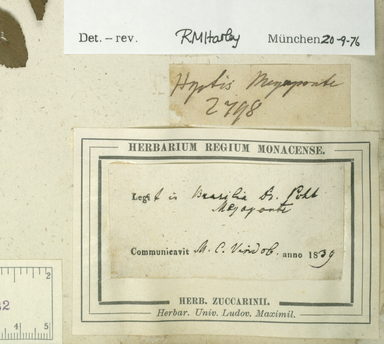 Det. – rev. RMHarley München 20-9-76
Hyptis Megaponte
2798
HERBARIUM REGIUM MONACENSE.
Legit in Brasilia Dr. Pohl
Megaponte
Communicavit M. C. Vindob. anno 1839
HERB. ZUCCARINII.
Herbar. Univ. Ludov. Maximil.
2
4 5